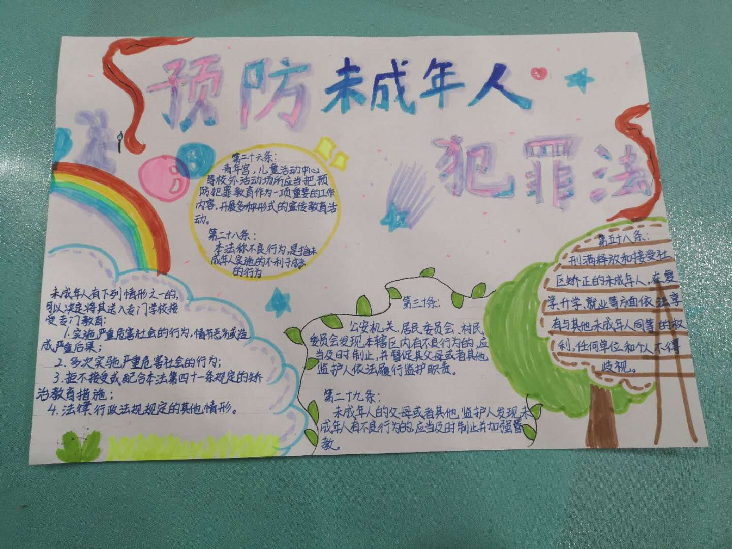 预防未成年人
犯罪法
第二十六条：
青年宫，儿童活动中心
等校外活动场所应当把预
防犯罪教育作为一项重要的工作
内容，开展多种形式的宣传教育活
动。
第二十八条：
本法称不良行为，是指未
成年人实施的不利于
的行为
未成年人有下列情形之一的，
可以决定将其送入专门学校接
受专门教育：
1.实施严重危害社会的行为，情节恶劣或造
成严重后果；
2.多次实施严重危害社会的行为；
3.拒不接受或配合本法第四十一条规定的矫
治教育措施；
4.法律，行政法规规定的其他情形。
第三十条：
公安机关、居民委员会、村民
委员会发现本辖区内有不良行为的，应
当及时制止，并督促其父母或者其他
监护人依法履行监护职责。
第二十九条：
未成年人的父母或者其他，监护人发现未
成年人有不良行为的，应当及时制止并加强管
教。
第五十八条：
刑满释放和接受社
区矫正的未成年人，在复
学、升学、就业等方面依法享
有与其他未成年人同等的权
利，任何单位和个人不得
歧视。